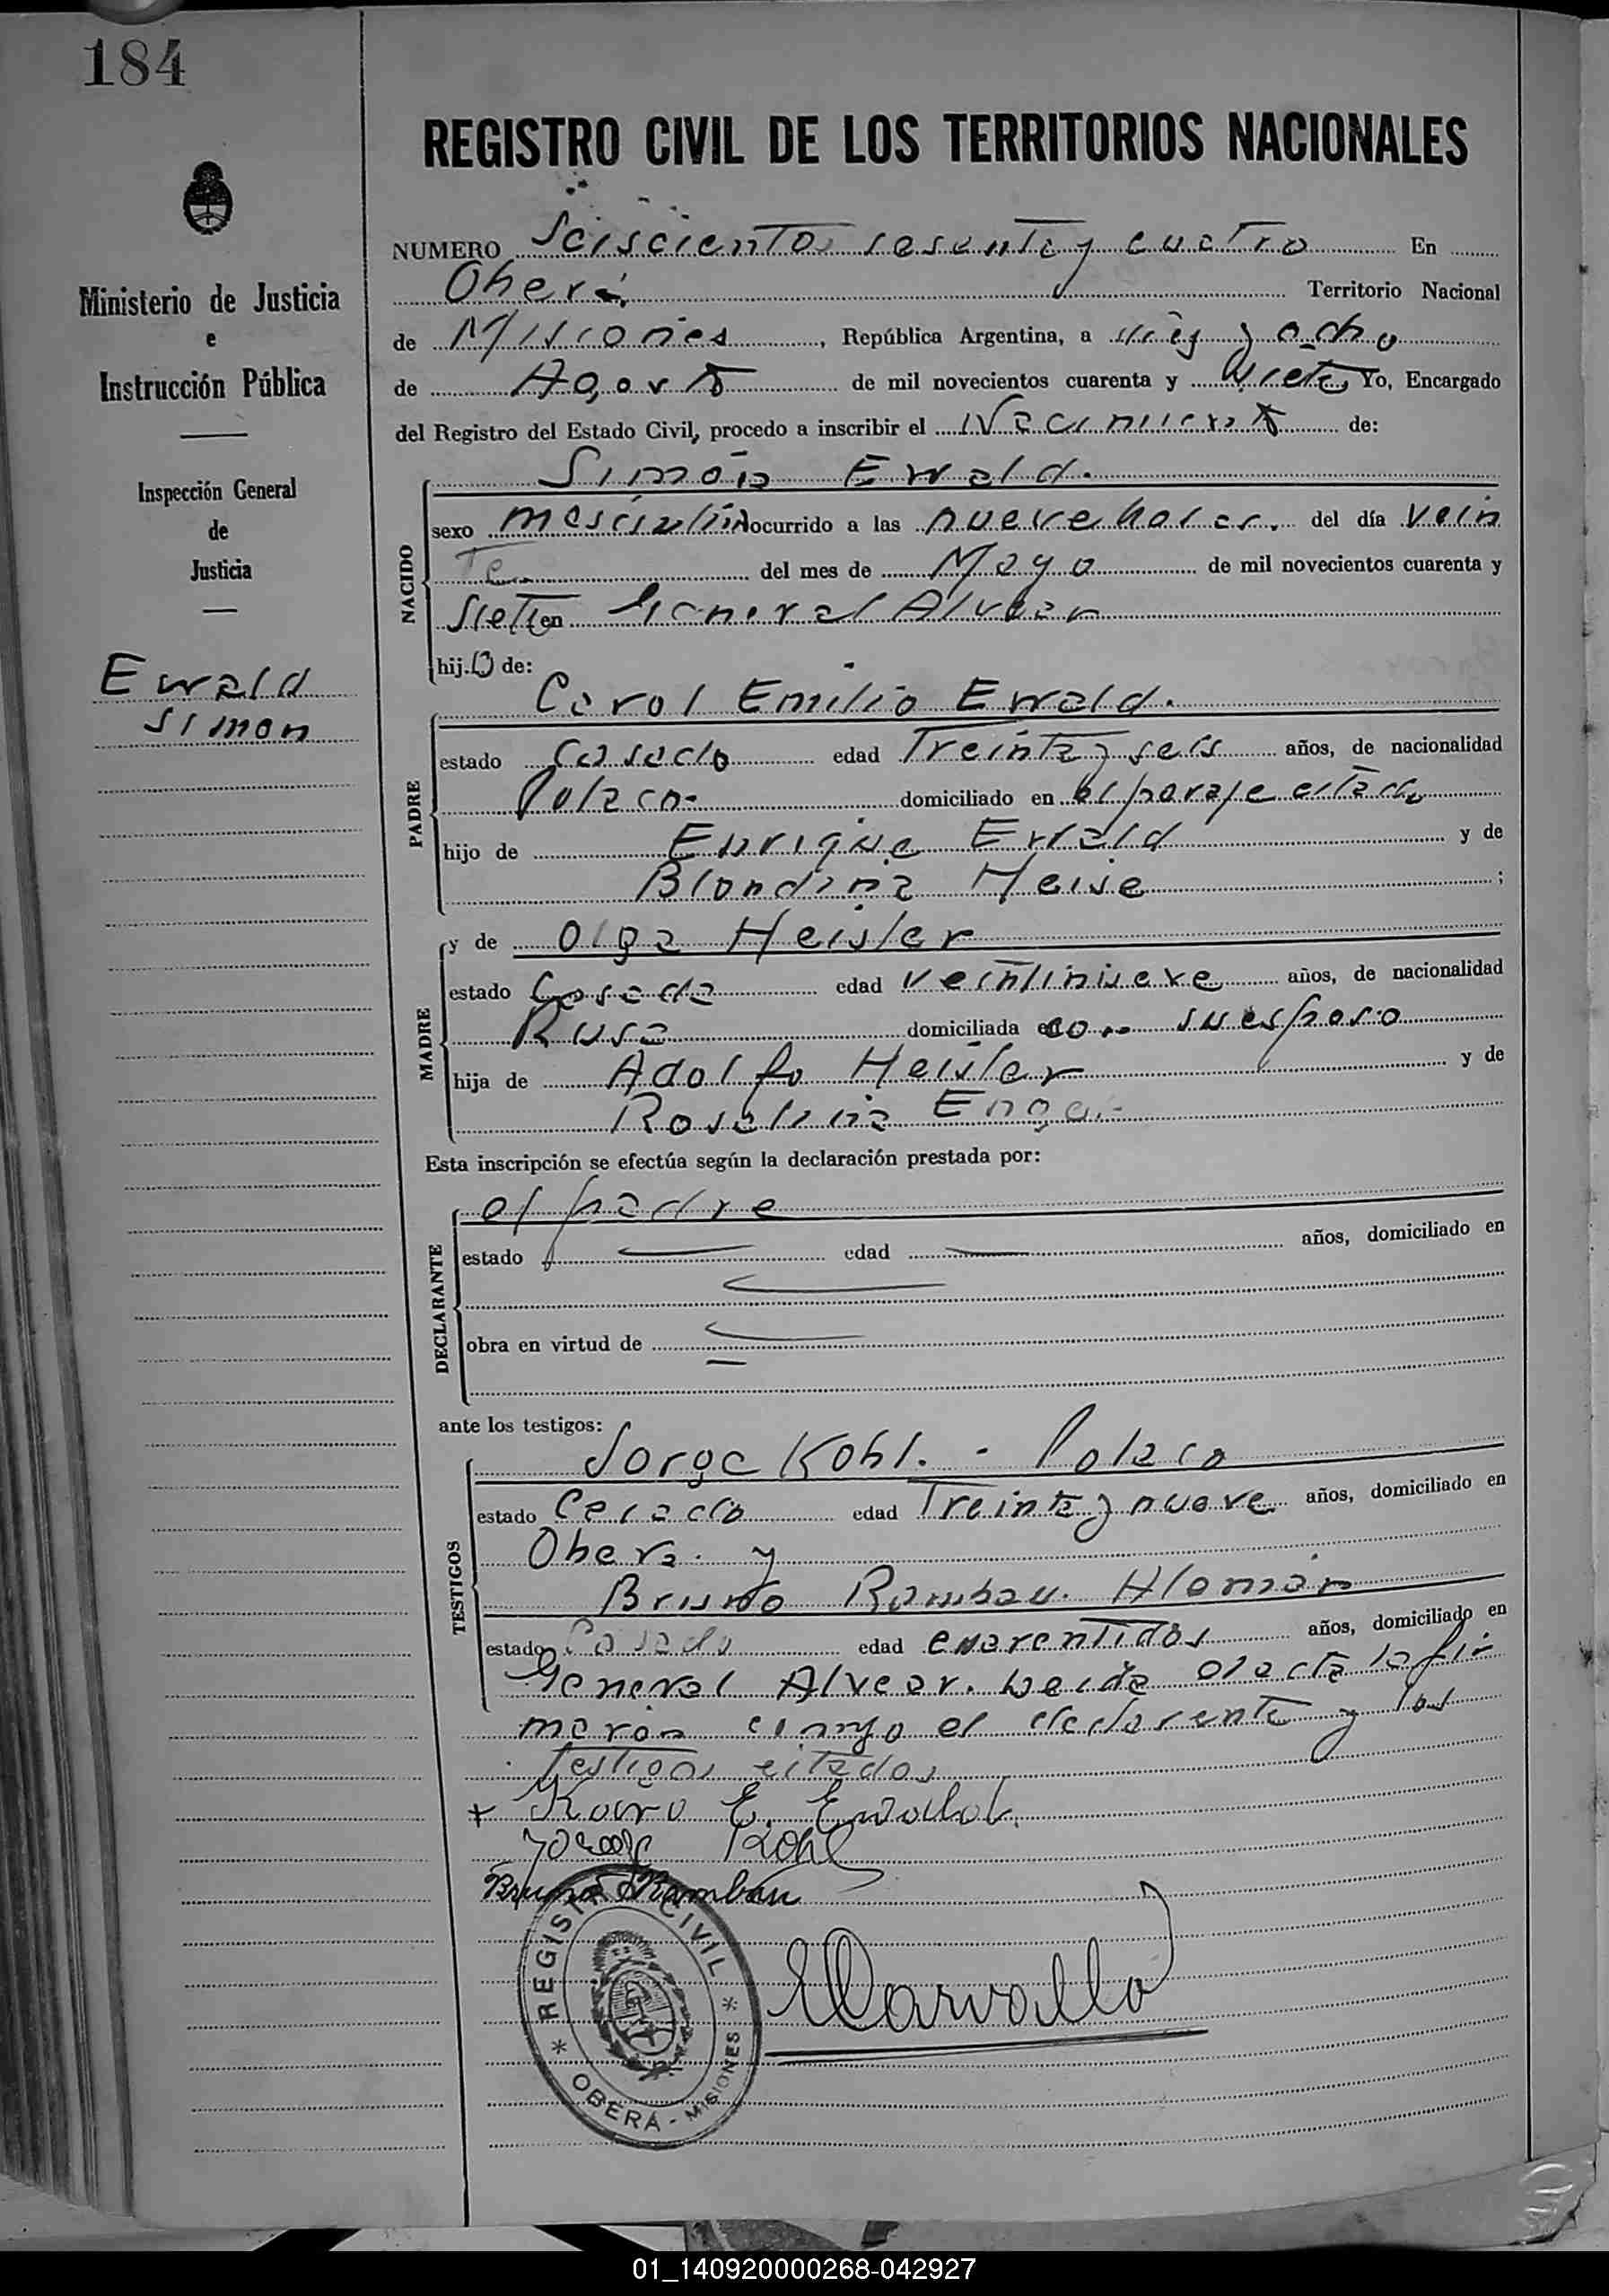 184
REGISTRO CIVIL DE LOS TERRITORIOS NACIONALES
Ministerio de Justicia
e
Instrucción Pública
Inspección General
de
Justicia
Ewald
Simon
NUMERO Seiscientos sesenta y cuatro En
Oberá Territorio Nacional
de Misiones, República Argentina, a diez y ocho
de Agosto de mil novecientos cuarenta y siete Yo, Encargado
del Registro del Estado Civil, procedo a inscribir el Nacimiento de:
Simón Ewald.
NACIDO
sexo masculino ocurrido a las nueve horas. del día vein
te del mes de Mayo de mil novecientos cuarenta y
siete en General Alvear
hijo de:
Carol Emilio Ewald.
PADRE
estado casado edad Treinta y seis años, de nacionalidad
Polaco domiciliado en el paraje citado
hijo de Enrique Ewald y de
Blondina Heise ;
y de Olga Heisler
MADRE
estado Casada edad veintinueve años, de nacionalidad
Rusa domiciliada con su esposo
hija de Adolfo Heisler y de
Rosalina
Esta inscripción se efectúa según la declaración prestada por:
el padre
DECLARANTE
estado edad años, domiciliado en
obra en virtud de
ante los testigos:
Jorge Kohl. - Polaco
TESTIGOS
estado Casado edad Treinta y nueve años, domiciliado en
Obera. y
Bruno Rambau. Alemán
estado Casado edad cuarentidos años, domiciliado en
General Alvear. Leida el acta la fir
maron conmigo el declarante y los
testigos citados
+ Karo E. Ewald.
Kohl
Bruno Rambau
REGISTRO CIVIL
* OBERÁ - MISIONES *
Carvallo
01_140920000268-042927